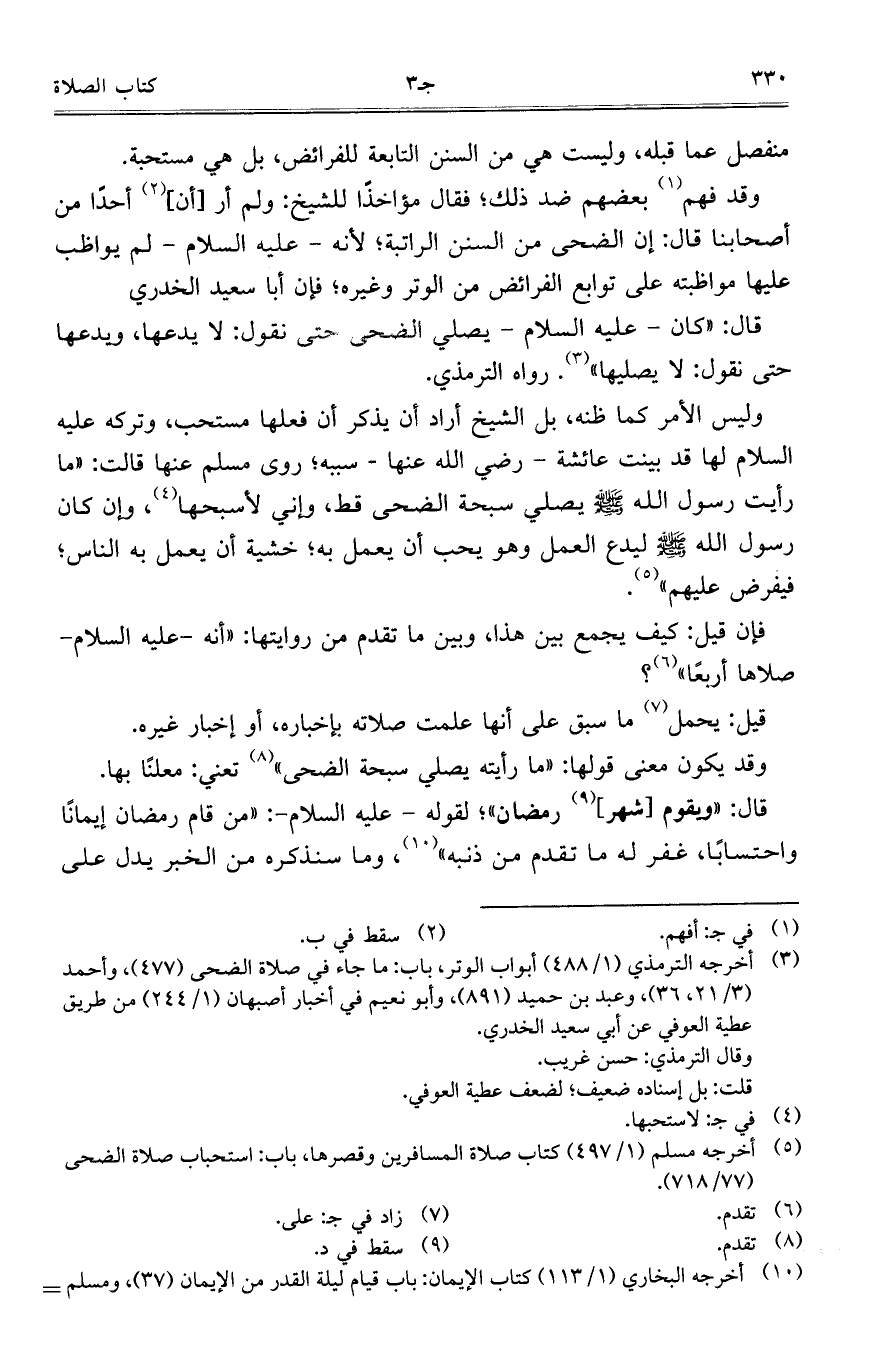 ٣٣٠ جـ٣ كتاب الصلاة
منفصل عما قبله، وليست هي من السنن التابعة للفرائض، بل هي مستحبة.
وقد فهم(١) بعضهم ضد ذلك؛ فقال مؤاخذًا للشيخ: ولم أر [أن](٢) أحدًا من
أصحابنا قال: إن الضحى من السنن الراتبة؛ لأنه - عليه السلام - لم يواظب
عليها مواظبته على توابع الفرائض من الوتر وغيره؛ فإن أبا سعيد الخدري
قال: «كان - عليه السلام - يصلي الضحى حتى نقول: لا يدعها، ويدعها
حتى نقول: لا يصليها»(٣). رواه الترمذي.
وليس الأمر كما ظنه، بل الشيخ أراد أن يذكر أن فعلها مستحب، وتركه عليه
السلام لها قد بينت عائشة - رضي الله عنها - سببه؛ روى مسلم عنها قالت: «ما
رأيت رسول الله ﷺ يصلي سبحة الضحى قط، وإني لأسبحها(٤)، وإن كان
رسول الله ﷺ ليدع العمل وهو يحب أن يعمل به؛ خشية أن يعمل به الناس؛
فيفرض عليهم»(٥).
فإن قيل: كيف يجمع بين هذا، وبين ما تقدم من روايتها: «أنه -عليه السلام-
صلاها أربعًا»(٦)؟
قيل: يحمل(٧) ما سبق على أنها علمت صلاته بإخباره، أو إخبار غيره.
وقد يكون معنى قولها: «ما رأيته يصلي سبحة الضحى»(٨) تعني: معلنًا بها.
قال: «ويقوم [شهر](٩) رمضان»؛ لقوله - عليه السلام-: «من قام رمضان إيمانًا
واحتسابًا، غفر له ما تقدم من ذنبه»(١٠)، وما سنذكره من الخبر يدل على
(١) في جـ: أفهم. (٢) سقط في ب.
(٣) أخرجه الترمذي (١/ ٤٨٨) أبواب الوتر، باب: ما جاء في صلاة الضحى (٤٧٧)، وأحمد
(٣/ ٢١، ٣٦)، وعبد بن حميد (٨٩١)، وأبو نعيم في أخبار أصبهان (١/ ٢٤٤) من طريق
عطية العوفي عن أبي سعيد الخدري.
وقال الترمذي: حسن غريب.
قلت: بل إسناده ضعيف؛ لضعف عطية العوفي.
(٤) في جـ: لاستحبها.
(٥) أخرجه مسلم (١/ ٤٩٧) كتاب صلاة المسافرين وقصرها، باب: استحباب صلاة الضحى
(٧٧/ ٧١٨).
(٦) تقدم. (٧) زاد في جـ: على.
(٨) تقدم. (٩) سقط في د.
(١٠) أخرجه البخاري (١/ ١١٣) كتاب الإيمان: باب قيام ليلة القدر من الإيمان (٣٧)، ومسلم =